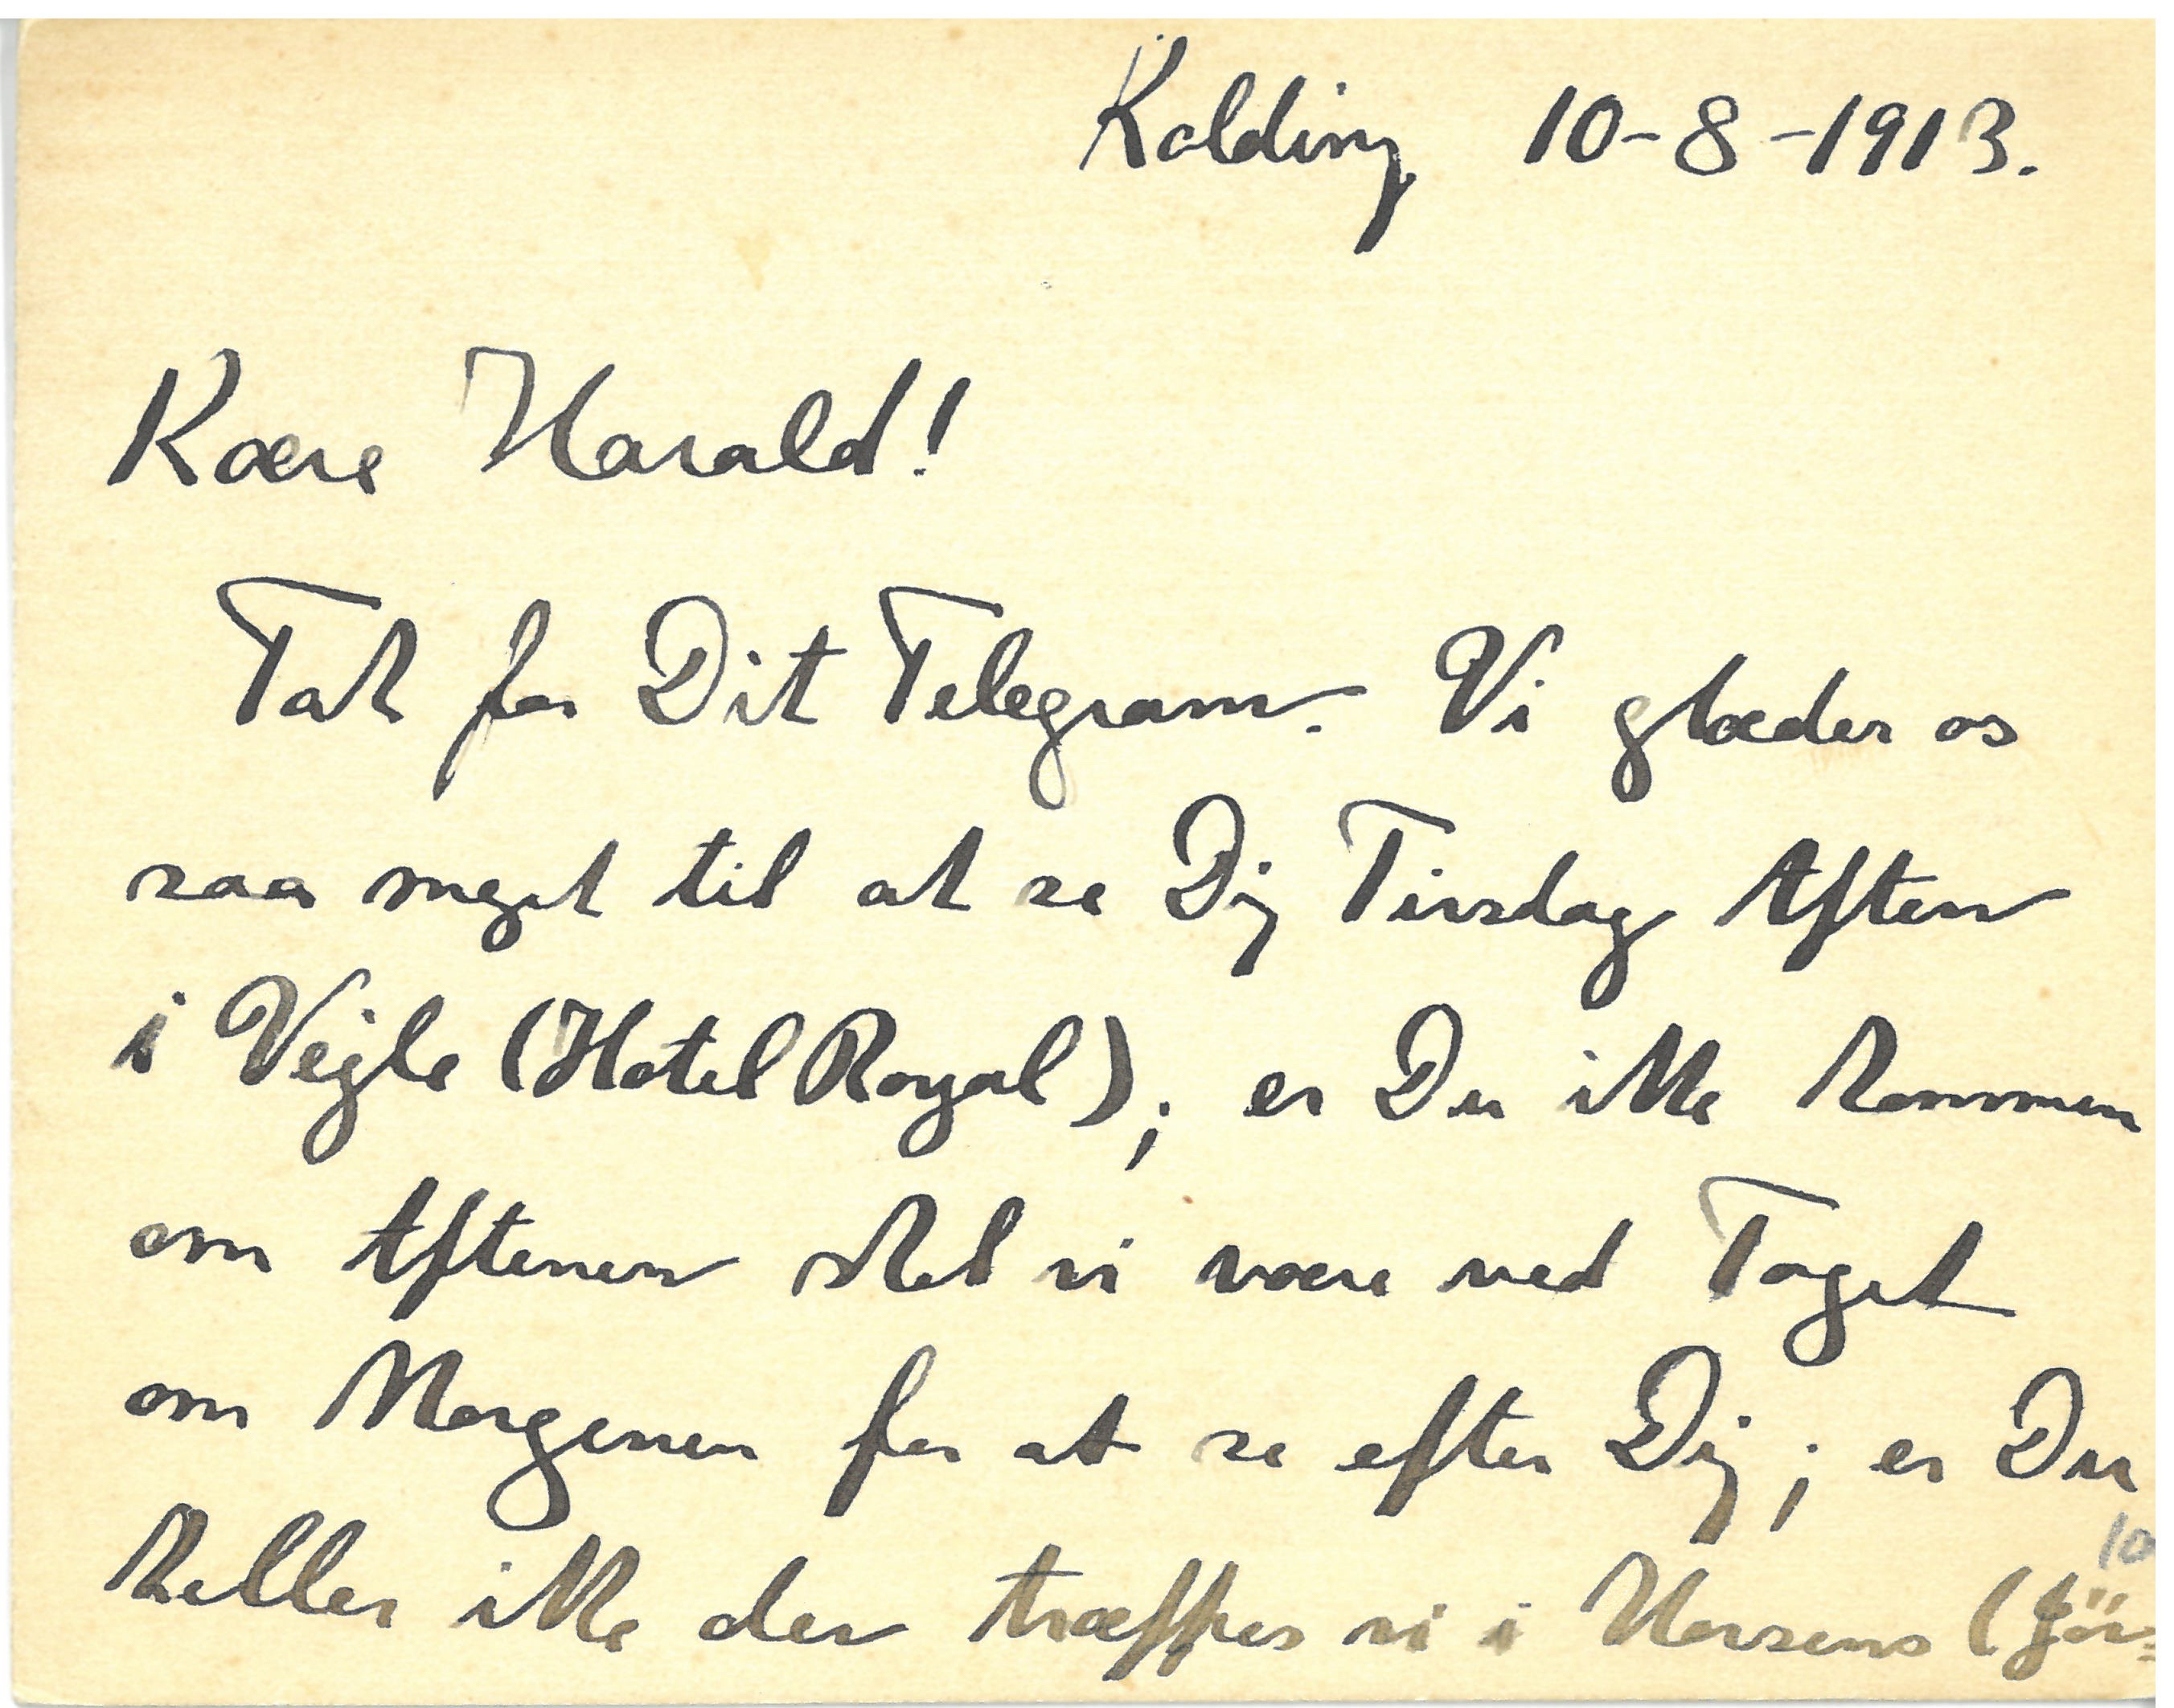 Kolding 10-8-1913.
Kære Harald!
Tak for Dit Telegram. Vi glæder os
saa meget til at se Dig Tirsdag Aften
i Vejle (Hotel Royal); er Du ikke kommen
om Aftenen skal vi være ved Toget
om Morgenen for at se efter Dig; er Du
heller ikke der træffes vi i Horsens (Jör-
10